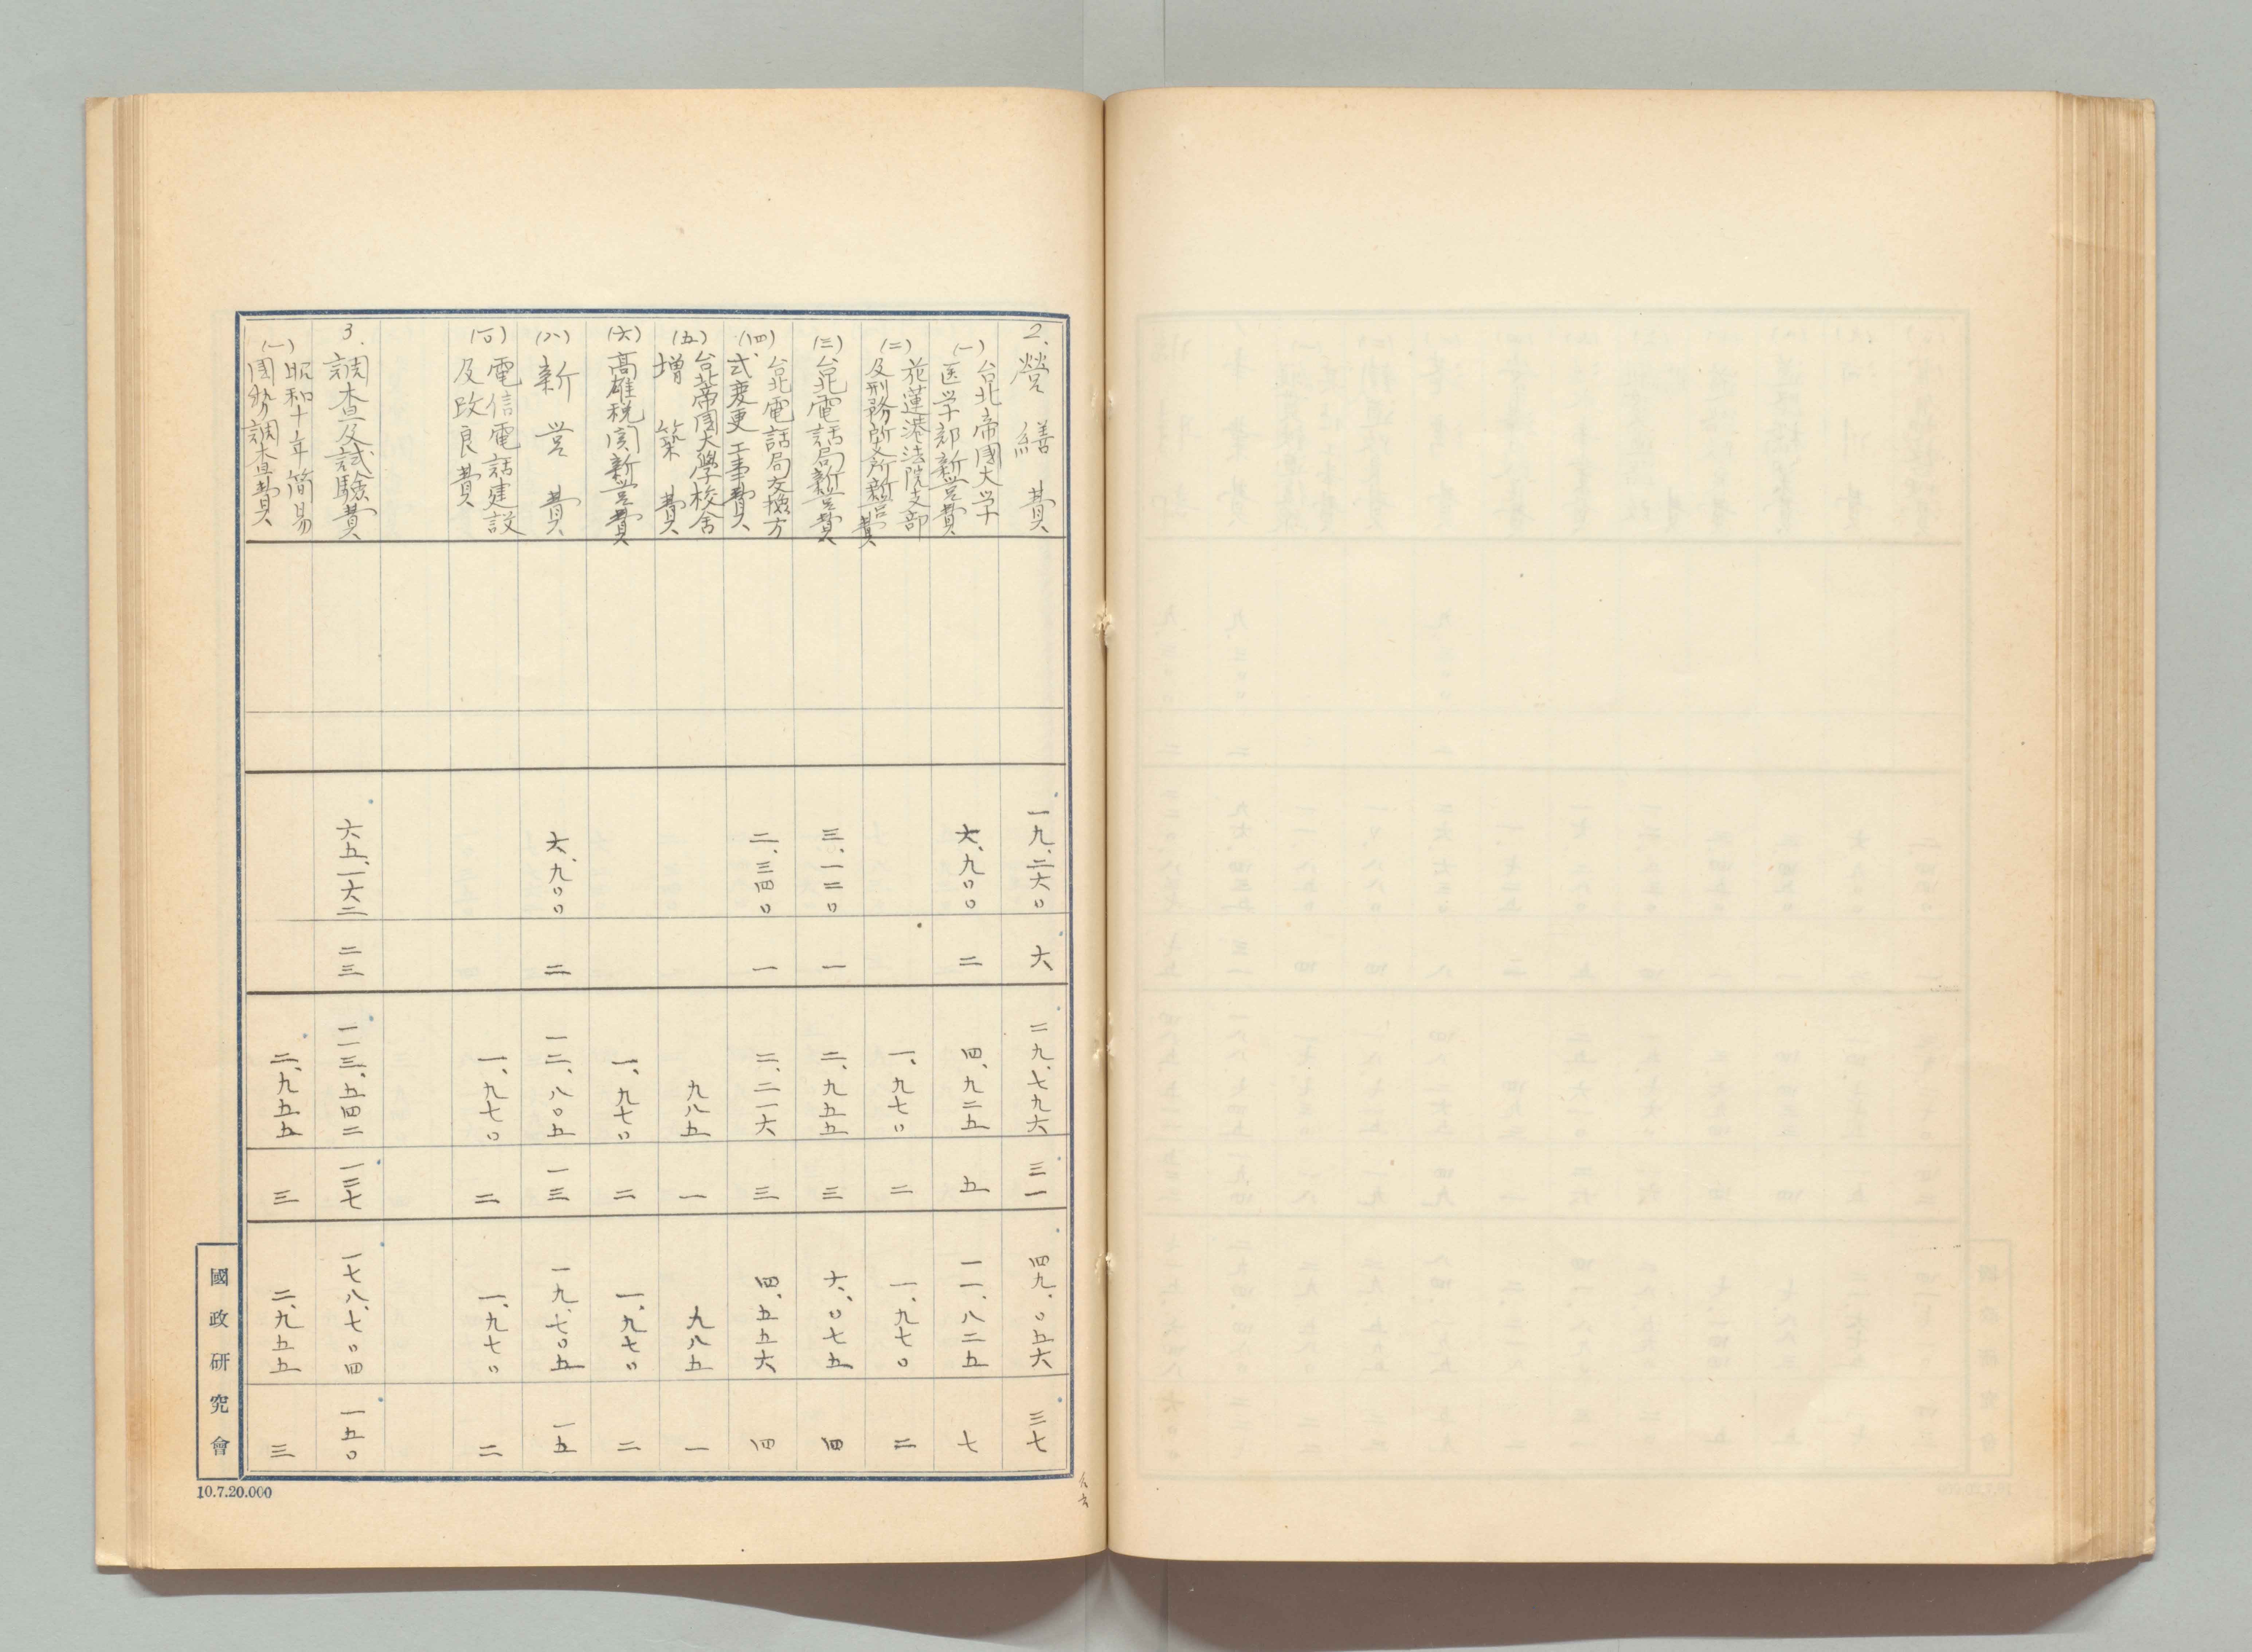 2. 營繕費
一九、二六〇
六
二九、七九六
三一
四九、〇五六
三七
(一) 台北帝國大学
医学部新営費
六、九〇〇
二
四、九二五
五
一一、八二五
七
(二) 花蓮港法院支部
及刑務所支所新営費
一、九七〇
二
一、九七〇
二
(三) 台北電話局新営費
三、一二〇
一
二、九五五
三
六、〇七五
四
(四) 台北電話局交換方
式変更工事費
二、三四〇
一
二、二一六
三
四、五五六
四
(五) 台北帝國大學校舍
増築費
九八五
一
九八五
一
(六) 高雄税関新営費
一、九七〇
二
一、九七〇
二
(八) 新営費
六、九〇〇
二
一二、八〇五
一三
一九、七〇五
一五
電信電話建設
及改良費
一、九七〇
二
一、九七〇
二
3. 調査及試驗費
六五、一六二
二三
一一三、五四二
一二七
一七八、七〇四
一五〇
(一) 昭和十年簡易
國勢調査費
二、九五五
三
二、九五五
三
國政研究會
10.7.20.000